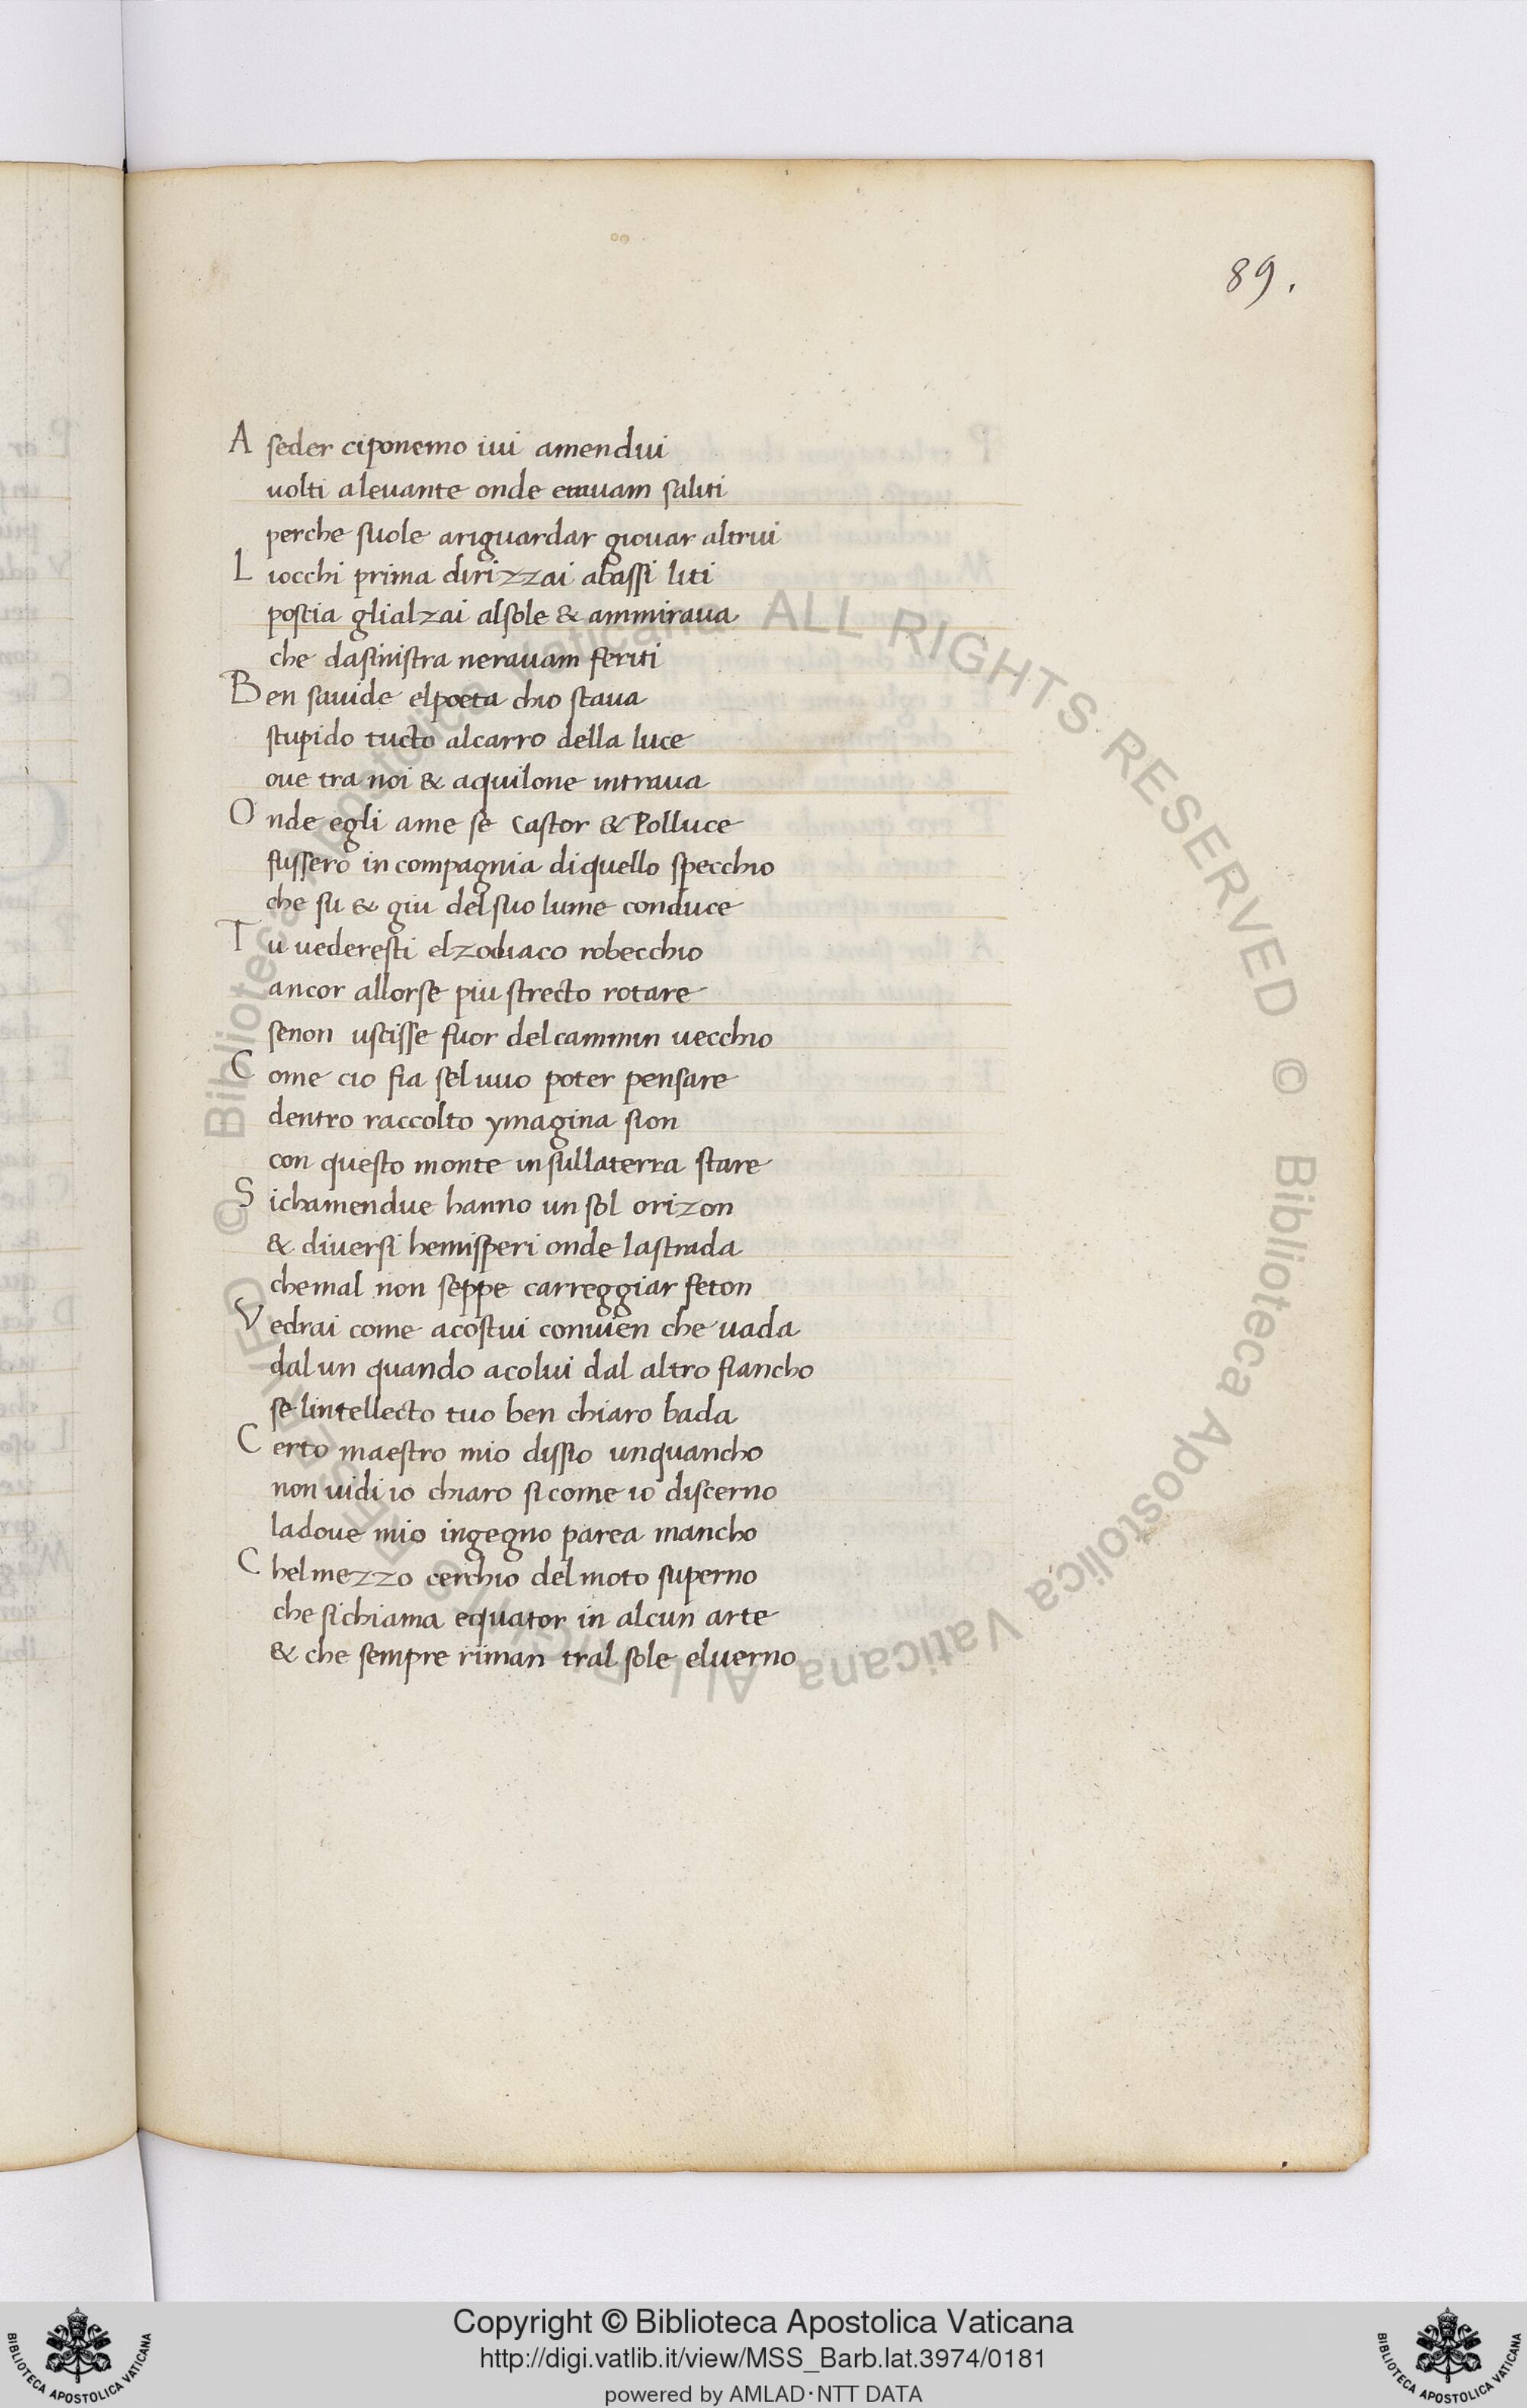 89.
A seder ciponemo iui amendui
uolti aleuante onde erauam saliti
perche suole ariguardar giouar altrui
L iocchi prima dirizzai abassi liti
poscia glialzai alsole & ammiraua
che dasinistra nerauam feriti
B en sauide elpoeta chio staua
stupido tucto alcarro della luce
oue tra noi & aquilone intraua
O nde egli ame se Castor & Polluce
fussero in compagnia diquello specchio
che su & giu delsuo lume conduce
T u uederesti elzodiaco robecchio
ancor allorse piu strecto rotare
senon uscisse fuor delcammin uecchio
C ome cio fia seluuo poter pensare
dentro raccolto ymagina sion
con questo monte insullaterra stare
S ichamendue hanno un sol orizon
& diuersi hemisperi onde lastrada
chemal non seppe carreggiar feton
V edrai come acostui conuien che uada
dal un quando acolui dal altro fiancho
se lintellecto tuo ben chiaro bada
C erto maestro mio dissio unquancho
non uidi io chiaro sicome io discerno
ladoue mio ingegno parea mancho
C helmezzo cerchio delmoto superno
che sichiama equator in alcun arte
& che sempre riman tral sole eluerno
© Biblioteca Apostolica Vaticana ALL RIGHTS RESERVED © Biblioteca Apostolica Vaticana ALL RIGHTS RESERVED
BIBLIOTECA APOSTOLICA VATICANA
Copyright © Biblioteca Apostolica Vaticana
http://digi.vatlib.it/view/MSS_Barb.lat.3974/0181
powered by AMLAD·NTT DATA
BIBLIOTECA APOSTOLICA VATICANA